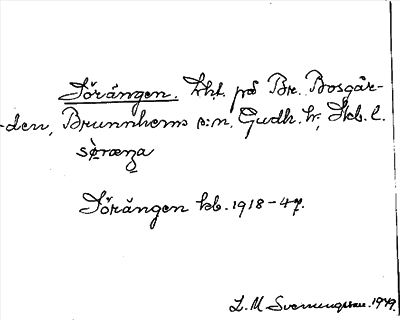 Sörängen. Lht. på Br. Bosgår-
den, Brunnhems s:n, Gudh. h:, Skb. l.
sö̀ræŋa
Sörängen kb. 1918-47.
L. M. Svenungsson. 1949.